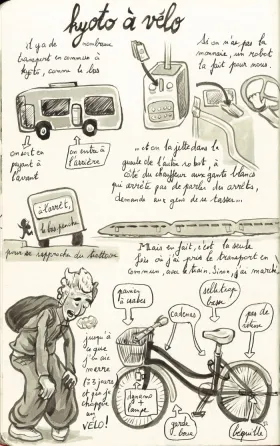 kyoto à vélo
il y a de nombreux
transport en commun à
kyôto, comme le bus
on sort en
payant à
l'avant
on entre à
l'arrière
Si on n'a pas la
monnaie, un robot
la fait pour nous.
...et on la jette dans la
gueule de l'autre robot, à
côté du chauffeur aux gants blancs
qui arrête pas de parler des arrêts,
demande aux gens de se tasser...
à l'arrêt,
le bus penche
pour se rapprocher du trottoir
Mais en fait, c'est la seule
fois où j'ai pris le transport en
commun, avec le train. Sinon, j'ai marché
jusqu'à
ce que
j'en aie
marre
(2-3 jours)
et que je
chope
un
VÉLO!
panier
à crabes
cadenas
selle trop
basse
pas de
frein
dynamo
lampe
garde
boue
béquille